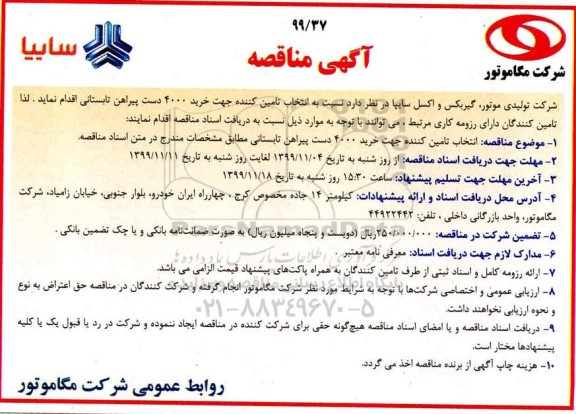 ۹۹/۳۷
سایپا
آگهی مناقصه
شرکت مگاموتور
شرکت تولیدی موتور، گیربکس و اکسل سایپا در نظر دارد نسبت به انتخاب تامین کننده جهت خرید ۴۰۰۰ دست پیراهن تابستانی اقدام نماید . لذا
تامین کنندگان دارای رزومه کاری مرتبط ، می توانند با توجه به موارد ذیل نسبت به دریافت اسناد مناقصه اقدام نمایند:
۱- موضوع مناقصه: انتخاب تامین کننده جهت خرید ۴۰۰۰ دست پیراهن تابستانی مطابق مشخصات مندرج در متن اسناد مناقصه.
۲- مهلت جهت دریافت اسناد مناقصه: از روز شنبه به تاریخ ۱۳۹۹/۱۱/۰۴ لغایت روز شنبه به تاریخ ۱۳۹۹/۱۱/۱۱
۳- آخرین مهلت جهت تسلیم پیشنهاد: ساعت ۱۵:۳۰ روز شنبه به تاریخ ۱۳۹۹/۱۱/۱۸
۴- آدرس محل دریافت اسناد و ارائه پیشنهادات: کیلومتر ۱۴ جاده مخصوص کرج ، چهارراه ایران خودرو، بلوار جنوبی، خیابان زامیاد، شرکت
مگاموتور، واحد بازرگانی داخلی ، تلفن: ۴۴۹۲۲۴۴۲
۵- تضمین شرکت در مناقصه: ۲۵۰/۰۰۰/۰۰۰ریال (دویست و پنجاه میلیون ریال) به صورت ضمانت‌نامه بانکی و یا چک تضمین بانکی .
۶- مدارک لازم جهت دریافت اسناد: معرفی نامه معتبر
۷- ارائه رزومه کامل و اسناد ثبتی از طرف تامین کنندگان به همراه پاکت‌های پیشنهاد قیمت الزامی می باشد.
۸- ارزیابی عمومی و اختصاصی شرکت‌ها با توجه به شرایط مورد نظر شرکت مگاموتور انجام گرفته و شرکت کنندگان در مناقصه حق اعتراض به نوع
و نحوه ارزیابی نخواهند داشت.
۹- دریافت اسناد مناقصه و یا امضای اسناد مناقصه هیچ‌گونه حقی برای شرکت کننده در مناقصه ایجاد ننموده و شرکت در رد یا قبول یک یا کلیه
پیشنهادها مختار است.
۱۰- هزینه چاپ آگهی از برنده مناقصه اخذ می گردد.
روابط عمومی شرکت مگاموتور
۰۲۱-۸۸۳۴۹۶۷۰-۵